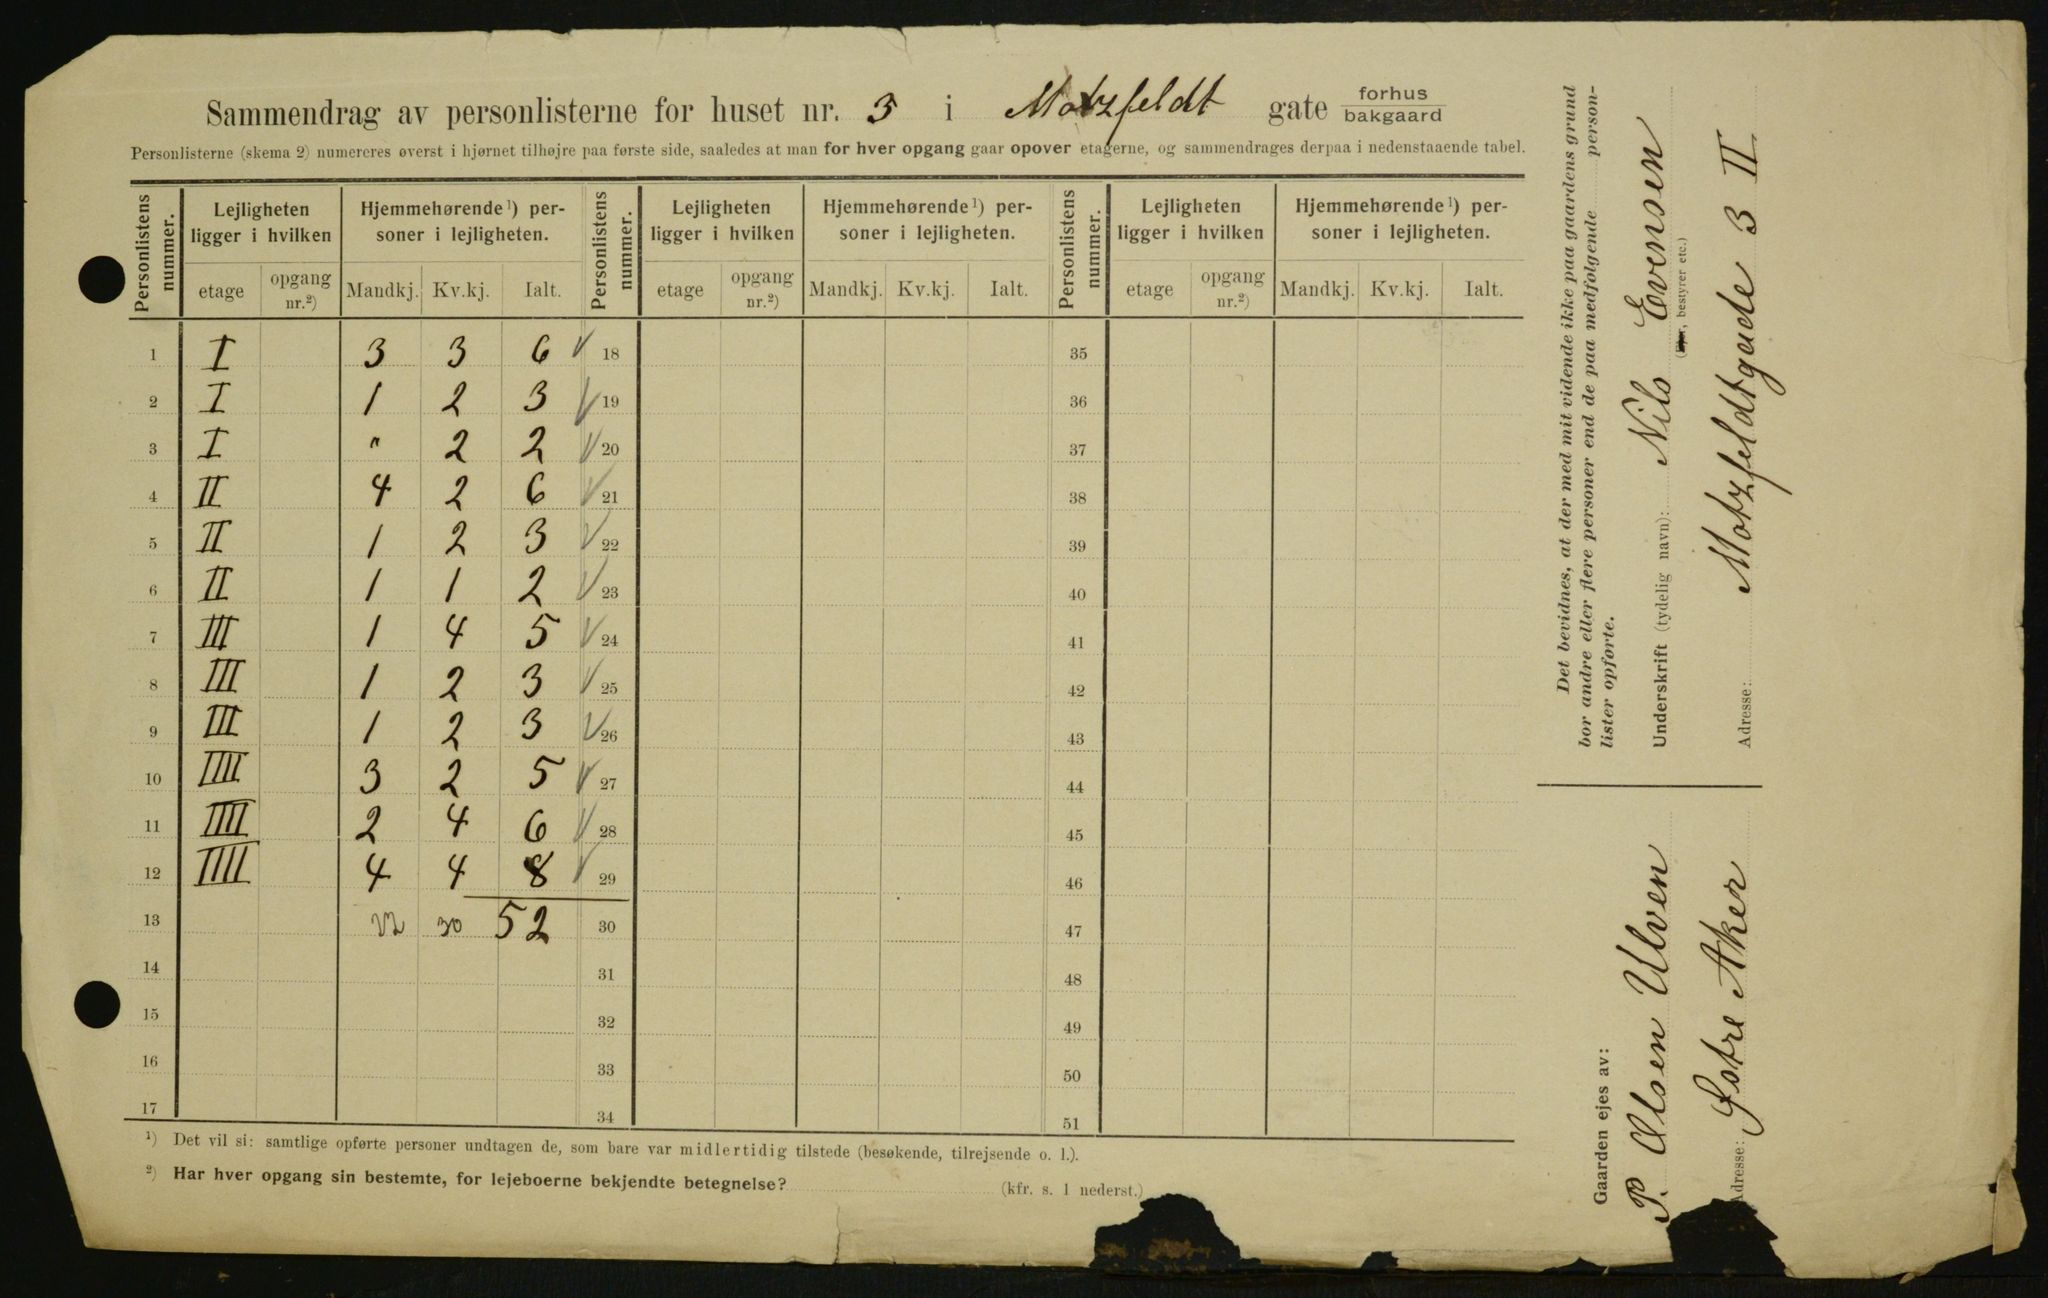 Sammendrag av personlisterne for huset nr. 3 i Motzfeldt gate forhus bakgaard
Personlisterne (skema 2) numereres øverst i hjørnet tilhøjre paa første side, saaledes at man for hver opgang gaar opover etagerne, og sammendrages derpaa i nedenstaaende tabel.
Personlistens nummer. Lejligheten ligger i hvilken Hjemmehørende ¹) personer i lejligheten. Personlistens nummer. Lejligheten ligger i hvilken Hjemmehørende ¹) personer i lejligheten. Personlistens nummer. Lejligheten ligger i hvilken Hjemmehørende ¹) personer i lejligheten.
etage opgang nr.²) Mandkj. Kv.kj. Ialt. etage opgang nr.²) Mandkj. Kv.kj. Ialt. etage opgang nr.²) Mandkj. Kv.kj. Ialt.
1 I 3 3 6 √ 18 35
2 I 1 2 3 √ 19 36
3 I " 2 2 √ 20 37
4 II 4 2 6 √ 21 38
5 II 1 2 3 √ 22 39
6 II 1 1 2 √ 23 40
7 III 1 4 5 √ 24 41
8 III 1 2 3 √ 25 42
9 III 1 2 3 √ 26 43
10 IIII 3 2 5 √ 27 44
11 IIII 2 4 6 √ 28 45
12 IIII 4 4 8 √ 29 46
13 22 30 52 30 47
14 31 48
15 32 49
16 33 50
17 34 51
¹) Det vil si: samtlige opførte personer undtagen de, som bare var midlertidig tilstede (besøkende, tilrejsende o. l.).
²) Har hver opgang sin bestemte, for lejeboerne bekjendte betegnelse? (kfr. s. 1 nederst.)
Det bevidnes, at der med mit vidende ikke paa gaardens grund
bor andre eller flere personer end de paa medfølgende person-
lister opførte.
Underskrift (tydelig navn): Nils Evensen
(Ejer, bestyrer etc.)
Adresse: Motzfeldtgade 3 II
Gaarden ejes av:
P. Olsen Ulven
Adresse: Østre Aker